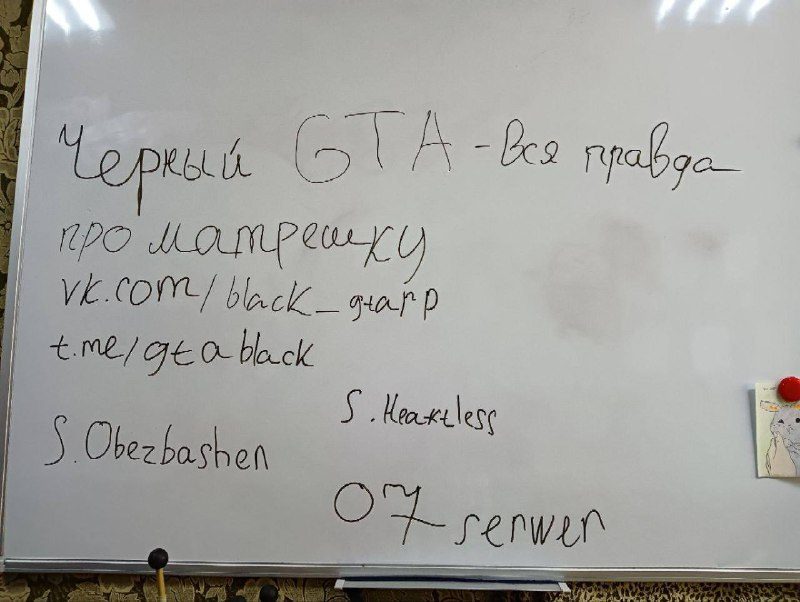 Черный GTA - вся правда
про матрешку
vk.com/black_gtarp
t.me/gtablack
S.Heartless
S.Obezbashen
07 serwer